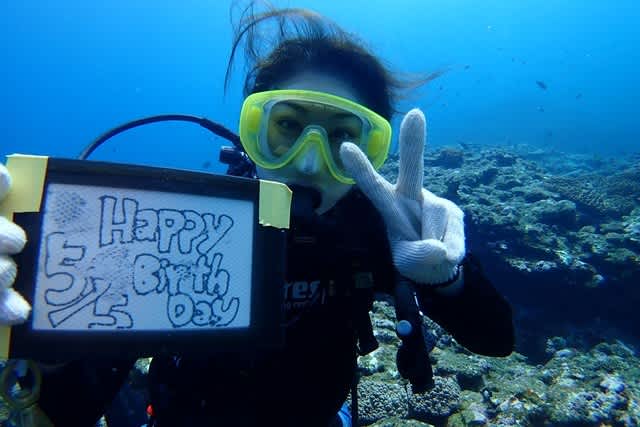 Happy
Birth
Day
5/5